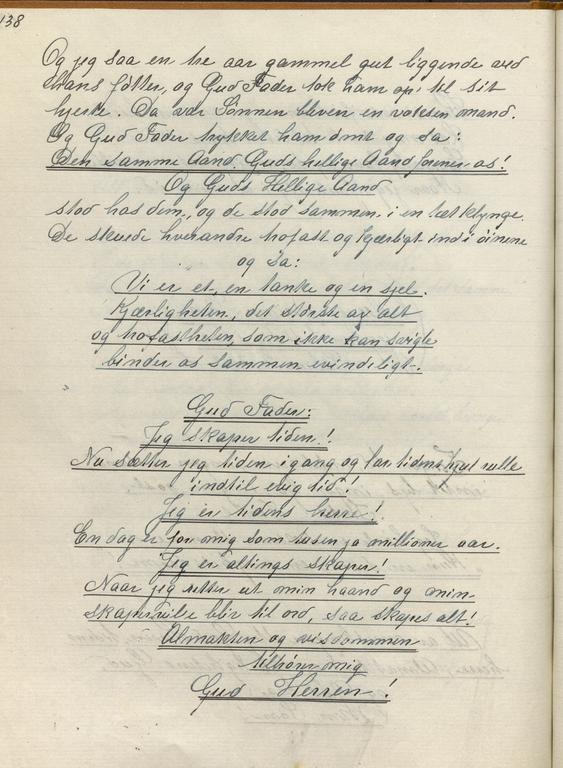 138
Og jeg saa en tre aar gammel gut liggende ved
hans føtter, og Gud Fader tok ham op til sit
hjerte. Da var Sønnen bleven en voksen mand.
Og Gud Fader trykket ham ømt og sa:
Den samme Aand, Guds hellige Aand forener os!
Og Guds Hellige Aand
stod hos dem, og de stod sammen i en tæt klynge.
De skuede hverandre trofast og kjærligt ind i øinene
og sa:
Vi er et, en tanke og en sjel.
Kjærligheten, det største av alt
og trofastheten, som ikke kan svigte
binder os sammen evindeligt.
Gud Fader:
Jeg skaper tiden!
Nu sætter jeg tiden igang og lar tidens hjul rulle
indtil evig tid!
Jeg er tidens herre!
En dag er for mig som tusen ja millioner aar.
Jeg er altings skaper!
Naar jeg retter ut min haand og min
skapervilje blir til ord, saa skapes alt!
Almakten og visdommen
tilhører mig
Gud Herren!